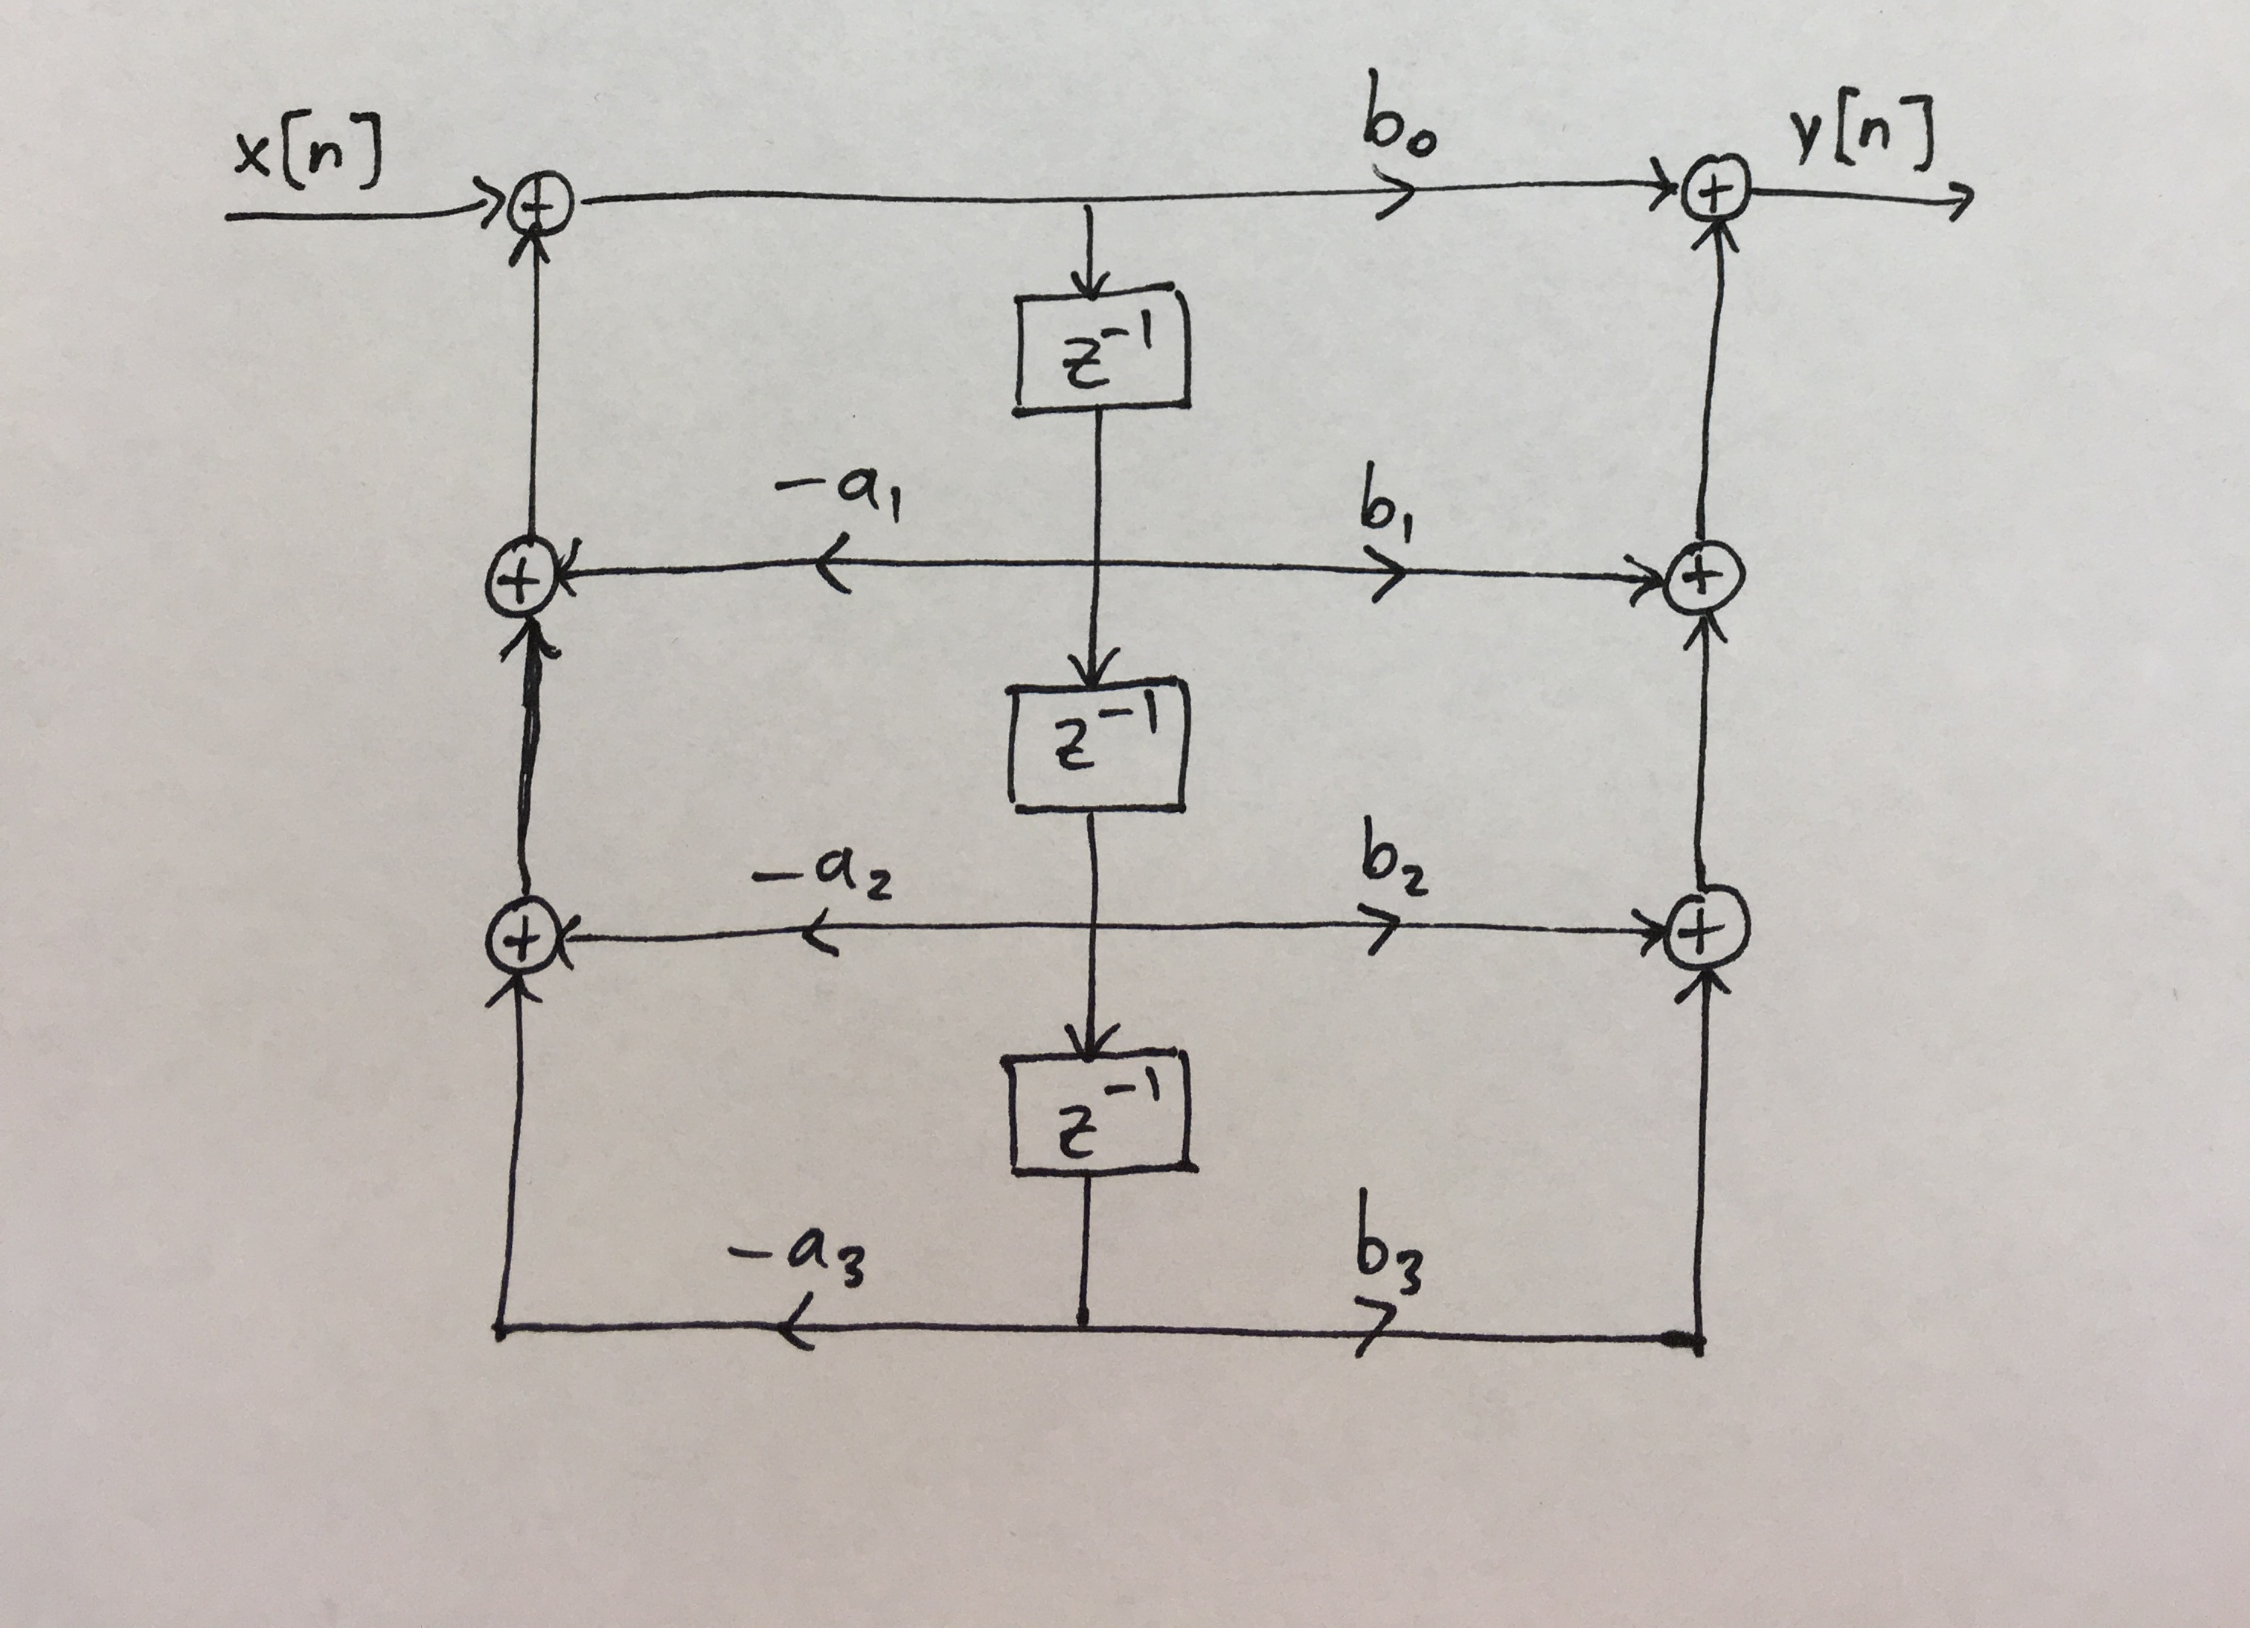 x[n] b₀ y[n]
z⁻¹
-a₁ b₁
z⁻¹
-a₂ b₂
z⁻¹
-a₃ b₃